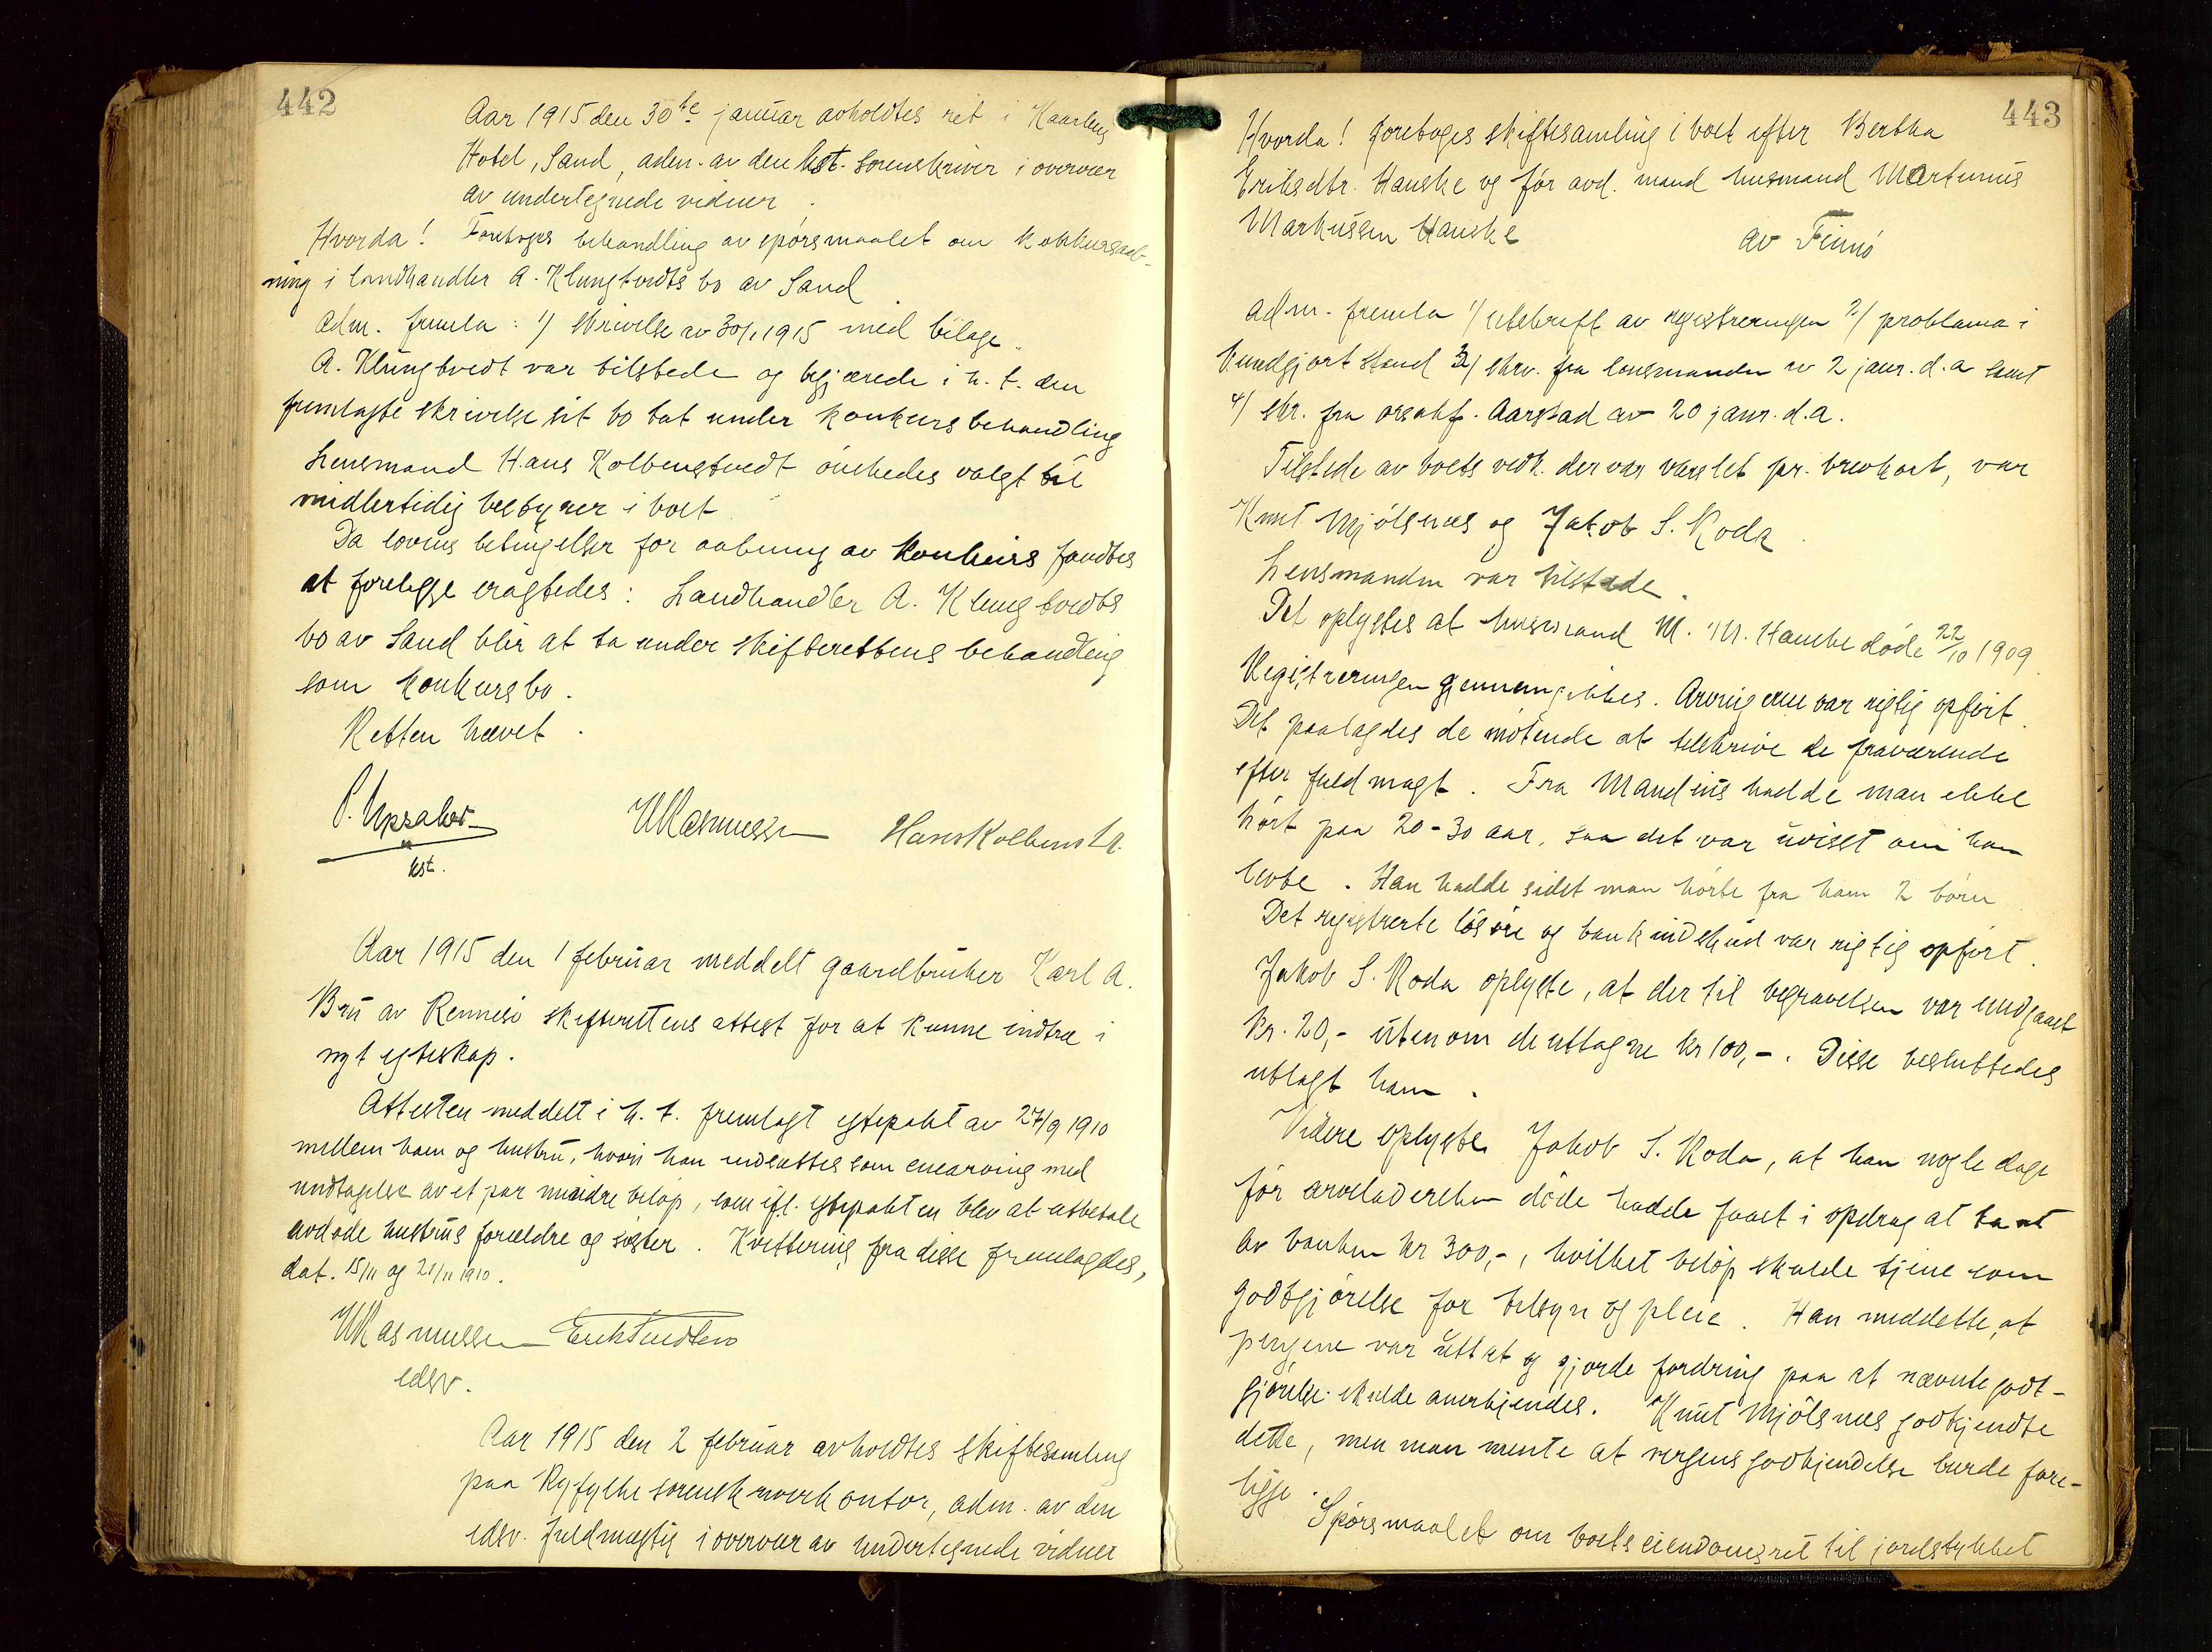 442
Aar 1915 den 30te januar avholdtes ret i Kaarhus
Hotel, Sand, adm. av den kst. Sorenskriver i overvær
av undertegnede vidner.
Hvorda! Foretoges behandling av spørsmaalet om konkursaab-
ning i landhandler A. Klungtvedts bo av Sand
Adm. fremla: 1) skrivelse av 30/1 1915 med bilage.
A. Klungtvedt var tilstede og begjærede i h. t. den
fremlagte skrivelse sit bo tat under konkursbehandling
Lensmand Hans Kolbenstvedt ønskedes valgt til
midlertidig bestyrer i boet
Da lovens betingelser for aabning av konkurs fandtes
at foreligge eragtedes: Landhandler A. Klungtvedts
bo av Sand blir at ta under skifterettens behandling
som konkursbo.
Retten hævet.
kst.
Rasmussen Hans Kolbenstv.
Aar 1915 den 1 februar meddelt gaardbruker Karl A.
Bru av Rennesø skifterettens attest for at kunne indtræ i
nyt egteskap.
Attesten meddelt i h. t. fremlagt egtepakt av 27/9 1910
mellem ham og hustru, hvori han indsattes som enearving med
undtagelse av et par mindre beløp, som ifl. egtepakten blev at utbetale
avdøde hustrus forældre og søster. Kvittering fra disse fremlagdes,
dat. 15/11 og 21/11 1910.
Rasmussen
edsv.
Aar 1915 den 2 februar avholdtes skiftesamling
paa Ryfylke sorenskriverkontor, adm. av den
edsv. fuldmægtig i overvær av undertegnede vidner
443
Hvorda! foretoges skiftesamling i boet efter Bertha
Eriksdtr. Hauske og før avd. mand husmand Martinius
Markussen Hauske av Finnø
Adm. fremla 1) utskrift av registreringen 2) proklama i
kundgjort stand 3) skrv. fra lensmanden av 2 janr. d.a samt
4) skr. fra orsakf. Aarstad av 20 janr. d.a.
Tilstede av boets vedk. der var varslet pr. brevkort, var
Knut Mjølsnes og Jakob S. Koda.
Lensmanden var tilstede.
Det oplystes at husmand M. M. Hauske døde 22/10 1909.
Registreringen gjennemgikkes. Arvingerne var rigtig opført.
Det paalagdes de møtende at tilskrive de fraværende
efter fuldmagt. Fra Mandius hadde man ikke
hørt paa 20-30 aar, saa det var uvisst om han
levte. Han hadde sidst man hørte fra ham 2 børn.
Det registrerte løsøre og bankindskud var rigtig opført.
Jakob S. Koda oplyste, at der til begravelsen var undgaaet
kr. 20,- utenom de uttagne kr 100,-. Disse besluttedes
utlagt ham.
Videre oplyste Jakob S. Koda, at han nogle dage
før arveladersken døde hadde faaet i opdrag at ta ut
av banken kr 300,-, hvilket beløp skulde tjene som
godtgjørelse for tilsyn og pleie. Han meddelte, at
pengene var uttat og gjorde fordring paa at nævnte godt-
gjørelse skulde anerkjendes. Knut Mjølsnes godkjendte
dette, men man mente at vergens godkjendelse burde fore-
ligge.
Spørsmaalet om boets eiendomsret til jordstykket